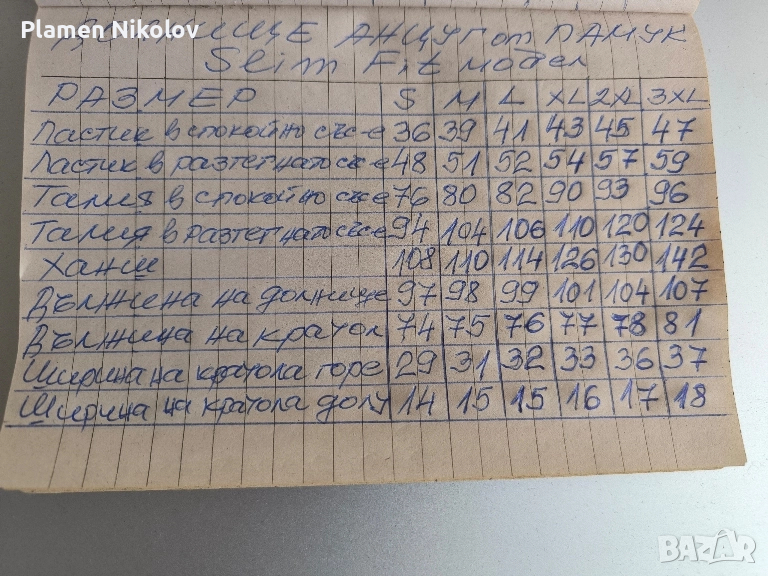 Plamen Nikolov
ДОЛНИЩЕ АНЦУГ от ПАМУК
Slim Fit модел
РАЗМЕР S M L XL 2XL 3XL
Ластик в спокойно със-е 36 39 41 43 45 47
Ластик в разтегнато със-е 48 51 52 54 57 59
Талия в спокойно със-е 76 80 82 90 93 96
Талия в разтегнато със-е 94 104 106 110 120 124
Ханш 108 110 114 126 130 142
Дължина на долнище 97 98 99 101 104 107
Дължина на крачол 74 75 76 77 78 81
Ширина на крачола горе 29 31 32 33 36 37
Ширина на крачола долу 14 15 15 16 17 18
BAZAR